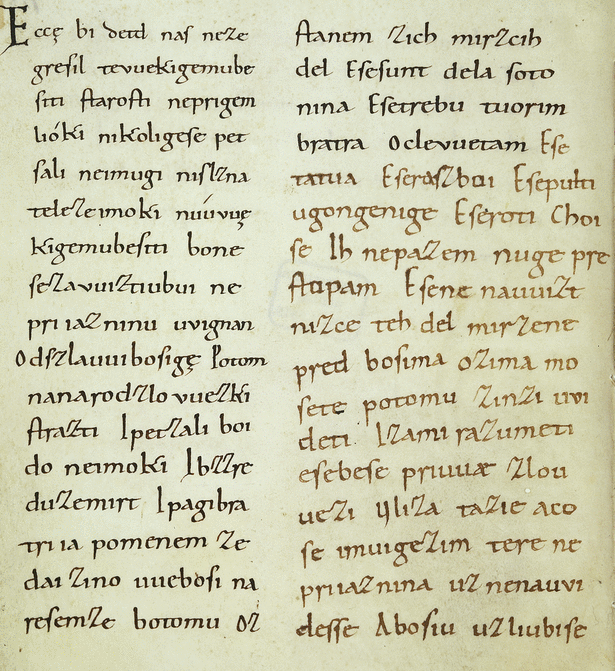 Eccę bi detd naſ neze
greſil tevuekigemube
ſiti ſtaroſti neprigem
lióki nikoligeſe pet
ſali neimugi niſlzna
telezeimoki nivúvuę
Kigemubeſiti bone
ſezavuiztiubui ne
priiazninu uvignan
Odszlauuibosigę Potom
nanarodzlovuezki
ſtrazti Ipetzali boi
do neimoki Ibzzre
duzemirt Ipagibra
triia pomenem ze
dai zino uuebosi na
resemze botomu oz
ſtanem zich mirzcih
del Eſeſunt dela ſoto
nina Eſetrebu tuorim
bratra Oclevuetam Eſe
tatua Eſerazboi Eſepulti
ugongenige Eſeroti Choi
ſe Ih nepazem nuge pre
ſtopam Eſene nauuizt
nizce teh del mirzene
pred bosima ozima mo
ſete potomu zinzi uvi
deti Izami razumeti
eſebeſe priuuæ zlou
uezi Iliza tazie aco
ſe imuigezim tere ne
priiaznina uz nenauvi
deſſe Aboſiu uzliubiſe